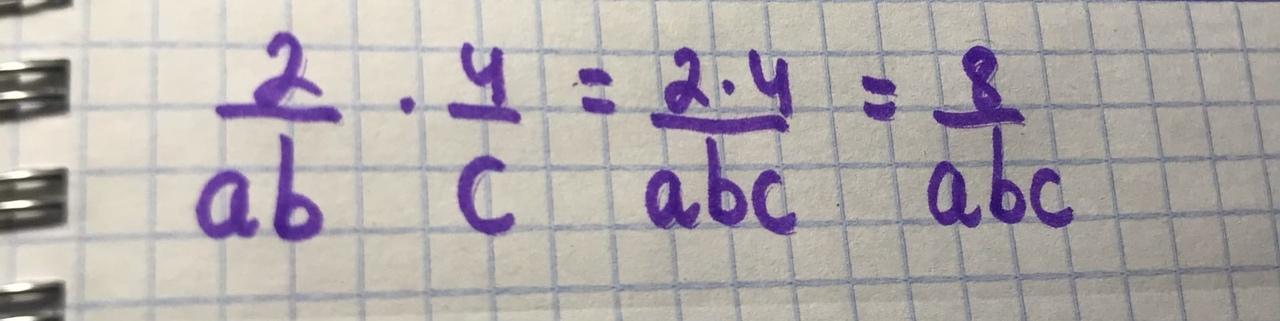 2/ab · 4/c = 2·4/abc = 8/abc